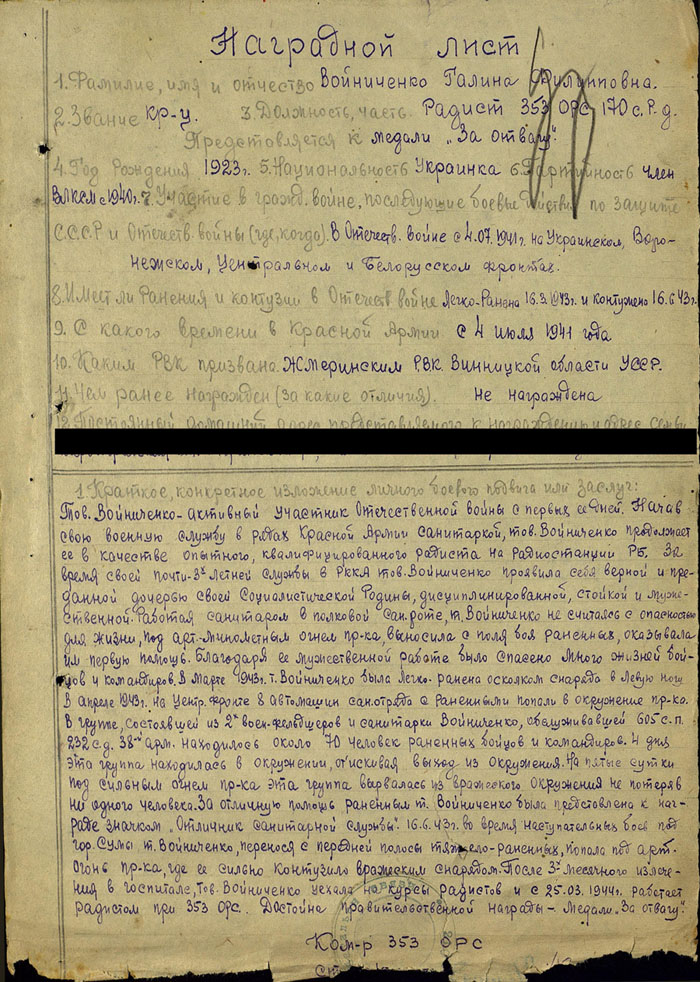 Наградной лист
1. Фамилие, имя и отчество Войниченко Галина Филипповна.
2. Звание кр-ц. 3. Должность, часть Радист 353 ОРС 170 с.р.д.
Предстовляется к медали „За отвагу".
4. Год рождения 1923г. 5. Национальность Украинка 6. Партийность член
ВЛКСМ с 1940г. 7. Участие в гражд. войне, последующие боевые действия по защите
С.С.С.Р и Отечеств. войны (где, когда). В Отечеств. войне с 4.07.1941г. на Украинском, Воро-
нежском, Центральном и Белорусском фронтах.
8. Имеет ли ранения и контузии в Отечеств войне Легко-ранена 16.3.1943г. и контужено 16.6.43г.
9. С какого времени в Красной Армии с 4 июля 1941 года
10. Каким РВК призвана Жмеринским РВК. Винницкой области УССР.
11. Чем ранее награжден (за какие отличия). Не награждена
12. Постоянный домашний адрес представляемого к награждению и адрес семьи
1. Краткое, конкретное изложение личного боевого подвига или заслуг:
Тов. Войниченко - активный участник Отечественной войны с первых ее дней. Начав
свою военную службу в рядах Красной Армии санитаркой, тов. Войниченко продолжает
ее в качестве опытного, квалифицированного радиста на радиостанции РБ. За
время своей почти-3х летней службы в РККА тов. Войниченко проявила себя верной и пре-
данной дочерью своей Социалистической Родины, дисциплинированной, стойкой и муже-
ственной. Работая санитаром в полковой сан.роте, т. Войниченко не считаясь с опасностью
для жизни, под арт.-минометным огнем пр-ка, выносила с поля боя раненных, оказывала
им первую помощь. Благодаря ее мужественной работе было спасено много жизней бой-
цов и командиров. В марте 1943г. т. Войниченко была легко-ранена осколком снаряда в левую ногу
В апреле 1943г. на Центр. фронте 8 автомашин сан.отряда с раненными попали в окружение пр-ка.
В группе, состоявшей из 2х воен-фельдшеров и санитарки Войниченко, обслуживавшей 605 с.п.
232 с.д. 38-ой арм. находилось около 70 человек раненных бойцов и командиров. 4 дня
эта группа находилась в окружении, отыскивая выход из окружения. На пятые сутки
под сильным огнем пр-ка эта группа вырвалась из вражеского окружения не потеряв
ни одного человека. За отличную помощь раненным т. Войниченко была предстовлена к наг-
раде значком „Отличник санитарной службы". 16.6.43г. во время наступательных боев под
гор. Сумы т. Войниченко, перенося с передней полосы тяжело-раненных, попала под арт.
огонь пр-ка, где ее сильно контузило вражеским снарядом. После 3х месячного излече-
ния в госпитале, тов. Войниченко уехала на курсы радистов и с 25.03.1944г. работает
радистом при 353 ОРС. Достойна правительственной награды - медали „За отвагу".
Ком-р 353 ОРС